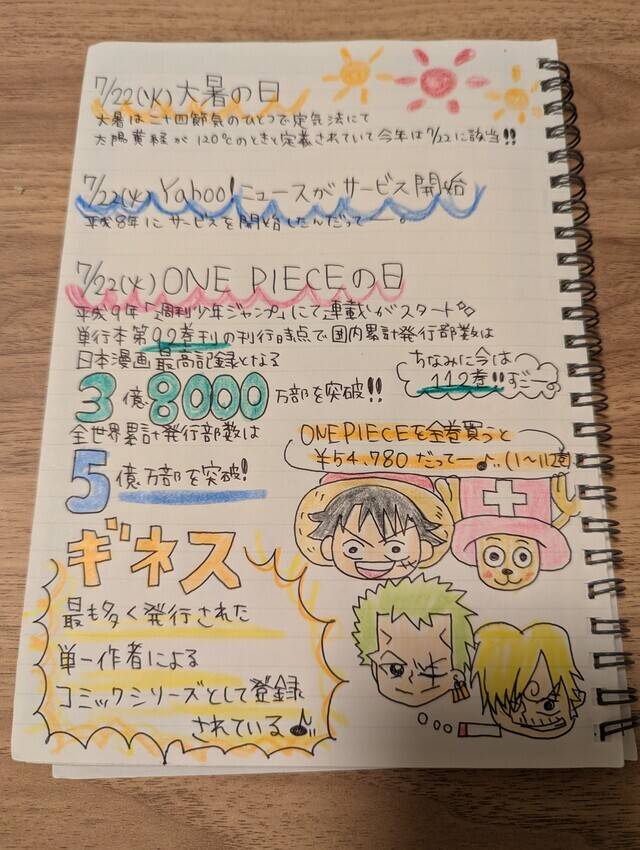 7/22(火)大暑の日
大暑は二十四節気のひとつで定気法にて
太陽黄経が120℃のときと定義されていて今年は7/22に該当!!
7/22(火)Yahoo!ニュースがサービス開始
平成8年にサービスを開始したんだってー。
7/22(火)ONE PIECEの日
平成9年「週刊少年ジャンプ」にて連載がスタート
単行本第92巻刊の刊行時点で国内累計発行部数は
日本漫画最高記録となる
3億8000万部を突破!!
ちなみに今は
112巻!!すごー。
全世界累計発行部数は
5億万部を突破!
ONE PIECEを全巻買うと
¥54,780だってー♪..(1~112巻)
ギネス
最も多く発行された
単一作者による
コミックシリーズとして登録
されている♪..